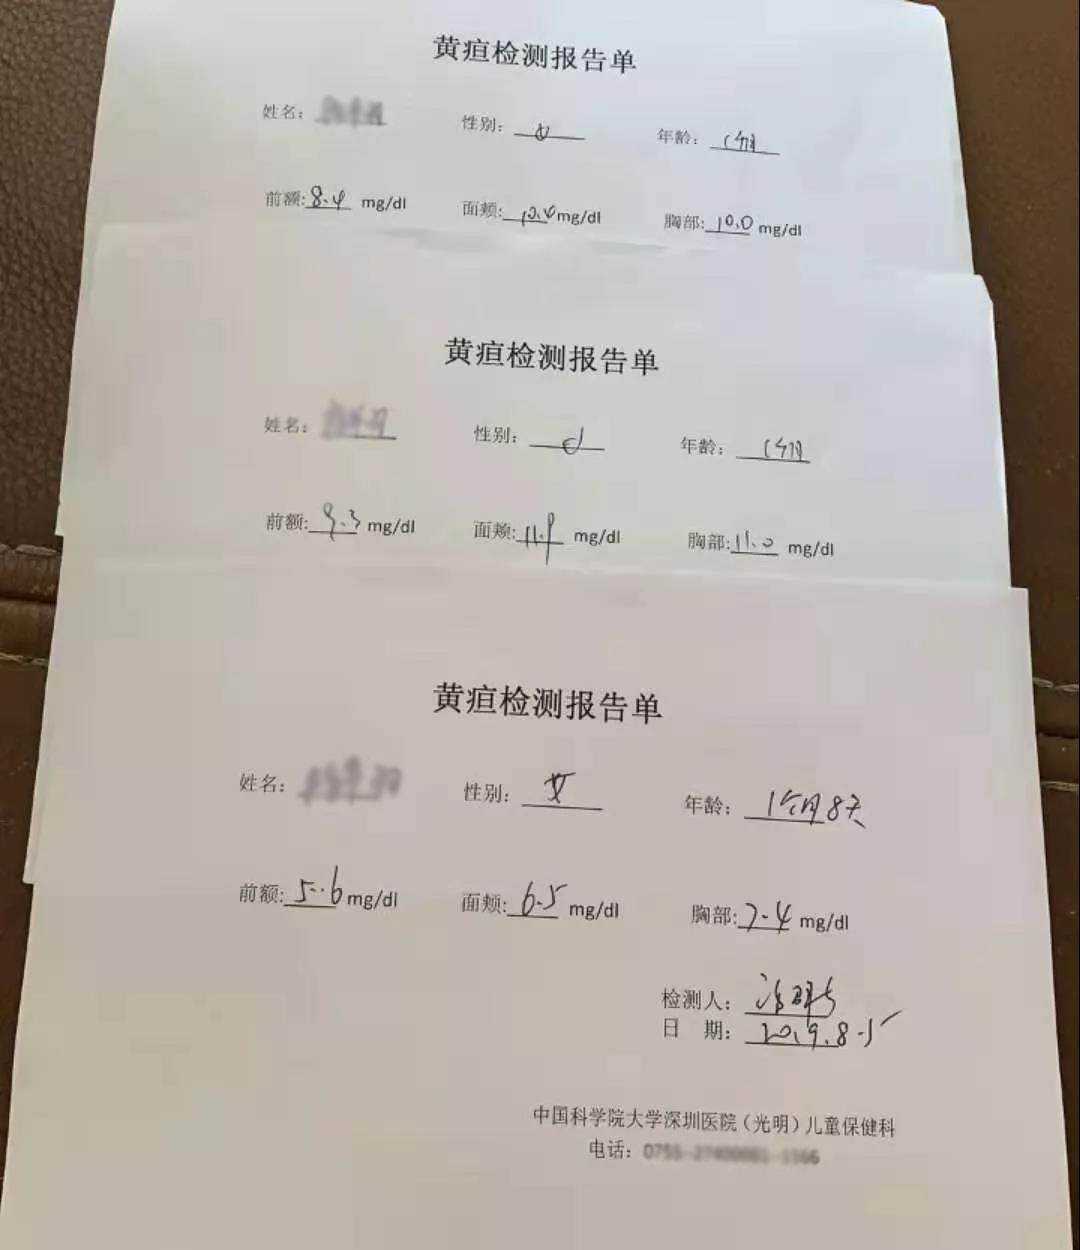 黄疸检测报告单
姓名： 性别：女 年龄：1个月
前额:8.4 mg/dl 面颊:10.4mg/dl 胸部:10.0 mg/dl
黄疸检测报告单
姓名： 性别：女 年龄：1个月
前额:9.3 mg/dl 面颊:11.9 mg/dl 胸部:11.0 mg/dl
黄疸检测报告单
姓名： 性别：女 年龄：1个月8天
前额:5.6 mg/dl 面颊:6.5 mg/dl 胸部:7.4 mg/dl
检测人：
日 期：2019.8.15
中国科学院大学深圳医院（光明）儿童保健科
电话：